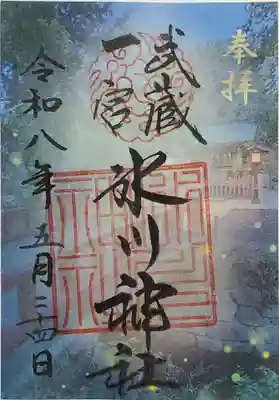 奉拝
武蔵
一宮
氷川神社
令和八年五月二十四日